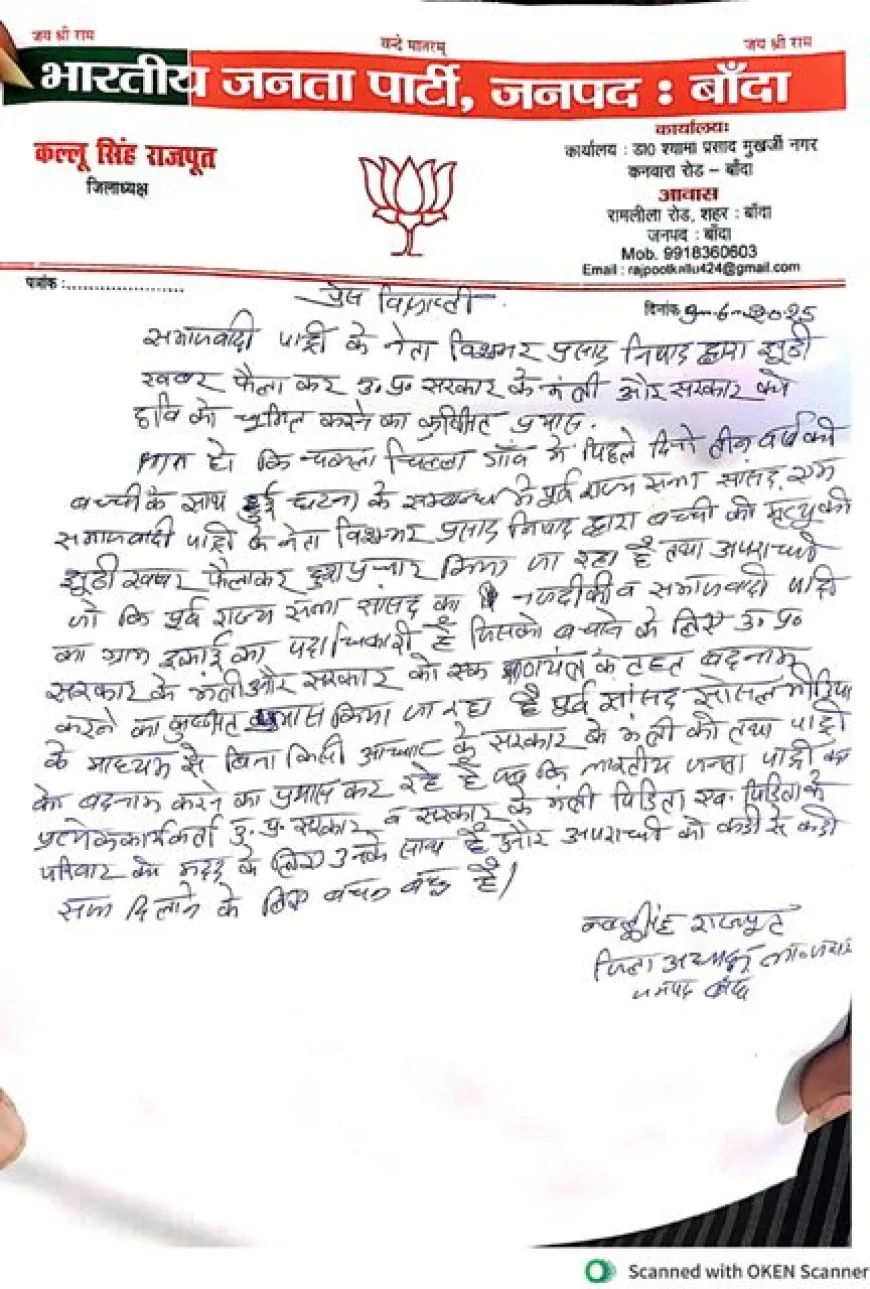 जय श्री राम
वन्दे मातरम्
जय श्री राम
भारतीय जनता पार्टी, जनपद : बाँदा
कल्लू सिंह राजपूत
जिलाध्यक्ष
कार्यालयः
कार्यालय : डा० श्यामा प्रसाद मुखर्जी नगर
कनवारा रोड – बाँदा
आवास
रामलीला रोड, शहर : बाँदा
जनपद : बाँदा
Mob. 9918360603
Email : rajpootkallu424@gmail.com
पत्रांक :.....................
दिनांक 9-6-2025
प्रेस विज्ञप्ती
समाजवादी पार्टी के नेता विशम्भर प्रसाद निषाद द्वारा झूठी
खबर फैला कर उ.प्र. सरकार के मंत्री और सरकार की
छवि को धूमिल करने का कुत्सित प्रयास.
ज्ञात हो कि चिल्ला गाँव में पिछले दिनो तीन वर्ष की
बच्ची के साथ हुई घटना के सम्बन्ध मे पूर्व राज्य सभा सांसद, एवम
समाजवादी पार्टी के नेता विशम्भर प्रसाद निषाद द्वारा बच्ची की मृत्यु की
झूठी खबर फैलाकर दुष्प्रचार किया जा रहा है तथा अपराधी
जो कि पूर्व राज्य सभा सांसद का नजदीकी व समाजवादी पार्टी
का ग्राम इकाई का पदाधिकारी है जिसको बचाने के लिए उ.प्र.
सरकार के मंत्री और सरकार को एक के तहत बदनाम
करने का कुत्सित प्रयास किया जा रहा है पूर्व सांसद सोसल मीडिया
के माध्यम से बिना किसी आधार के सरकार के मंत्री को तथा पार्टी
को बदनाम करने का प्रयास कर रहे है जब कि भारतीय जनता पार्टी का
प्रत्येक कार्यकर्ता उ.प्र. सरकार व सरकार के मंत्री पिडिता एवं पिडिता के
परिवार की मदद के लिए उनके साथ है और अपराधी को कडी से कडी
सजा दिलाने के लिए बचन बद्ध है।
कल्लू सिंह राजपूत
जिला अध्यक्ष भा०ज०पा०
जनपद बाँदा
Scanned with OKEN Scanner